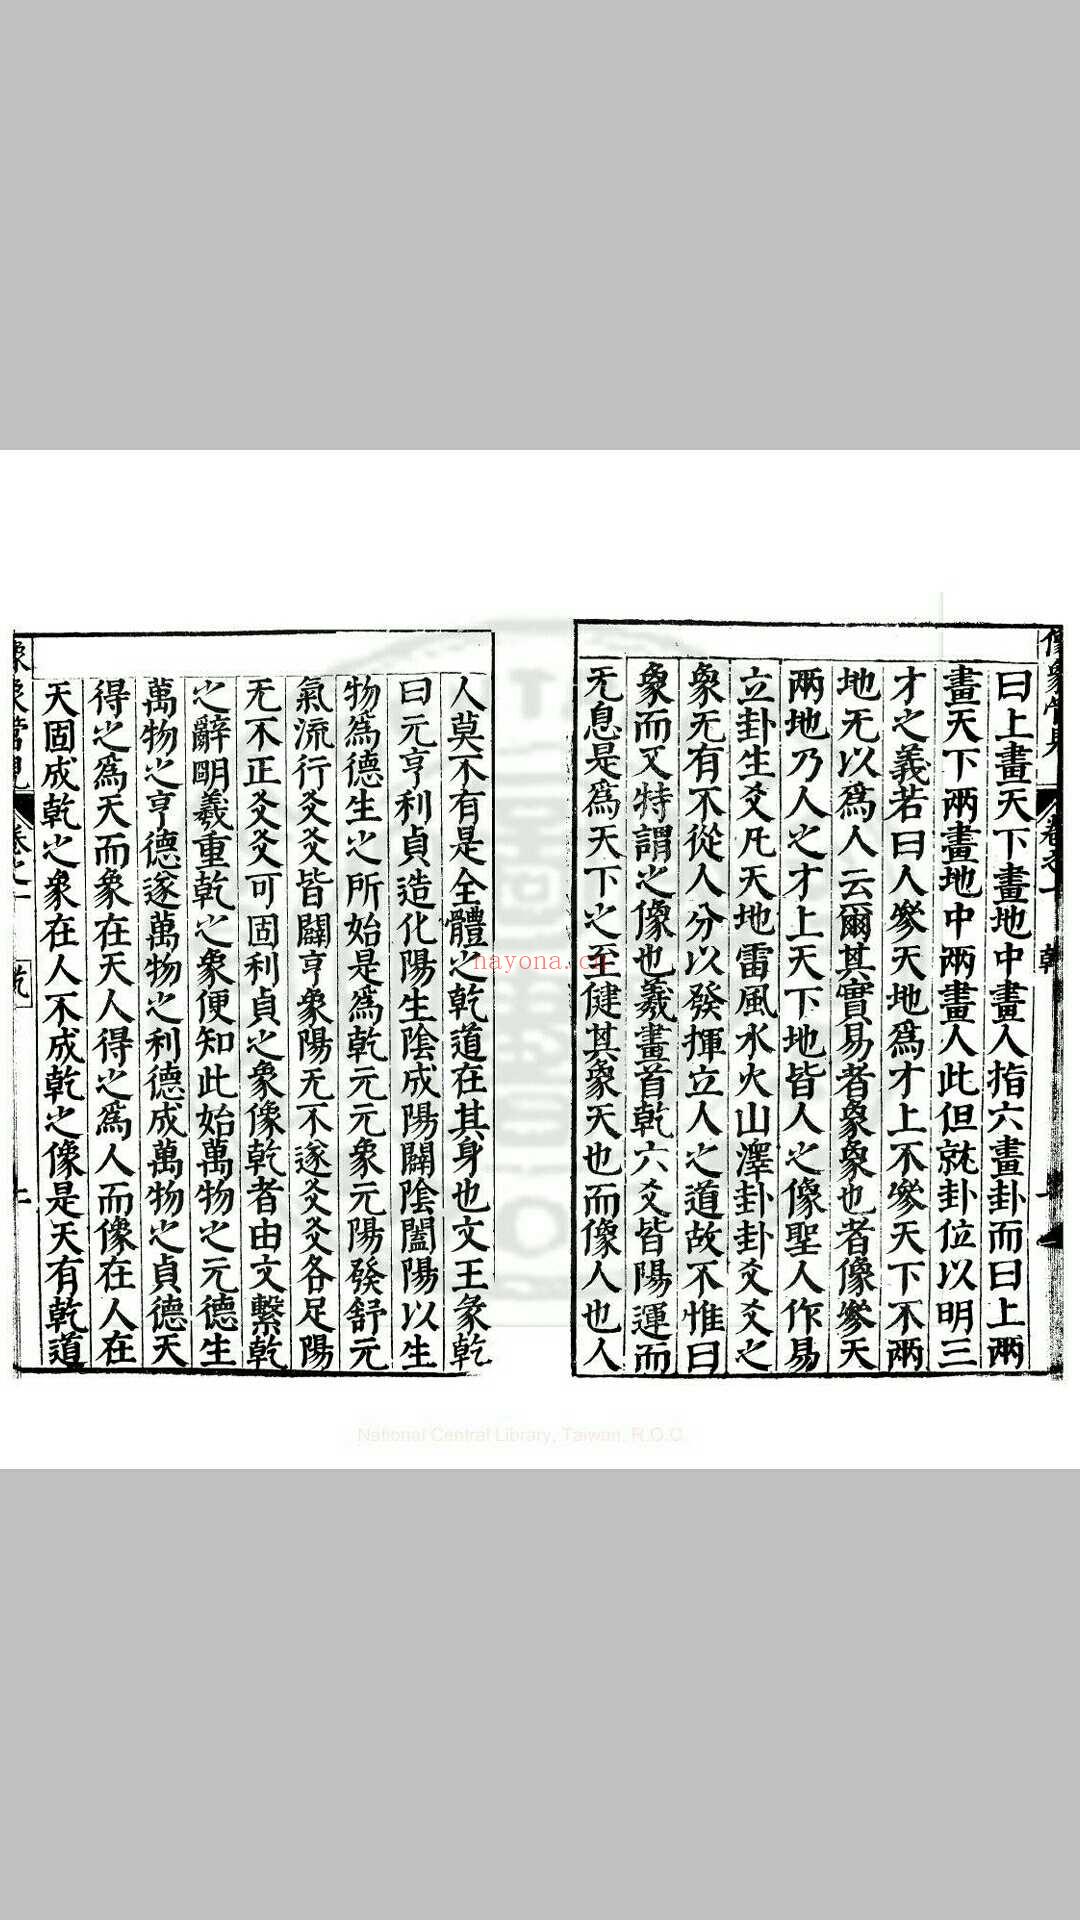 像象管見 卷之一 乾
曰上畫天下畫地中畫人指六畫卦而曰上兩
畫天下兩畫地中兩畫人此但就卦位以明三
才之義若曰人參天地爲才上不參天下不兩
地无以爲人云爾其實易者象象也者像參天
兩地乃人之才上天下地皆人之像聖人作易
立卦生爻凡天地雷風水火山澤卦卦爻爻之
象无有不從人分以發揮立人之道故不惟曰
象而又特謂之像也羲畫首乾六爻皆陽運而
无息是爲天下之至健其象天也而像人也人
人莫不有是全體之乾道在其身也文王彖乾
曰元亨利貞造化陽生陰成陽闢陰闔陽以生
物爲德生之所始是爲乾元元象元陽發舒元
氣流行爻爻皆闢亨象陽无不遂爻爻各足陽
无不正爻爻可固利貞之象像乾者由文繫乾
之辭明羲重乾之象便知此始萬物之元德生
萬物之亨德遂萬物之利德成萬物之貞德天
得之爲天而象在天人得之爲人而像在人在
天固成乾之象在人不成乾之像是天有乾道
像象管見 卷之一
nayona.cn
National Central Library, Taiwan, R.O.C.